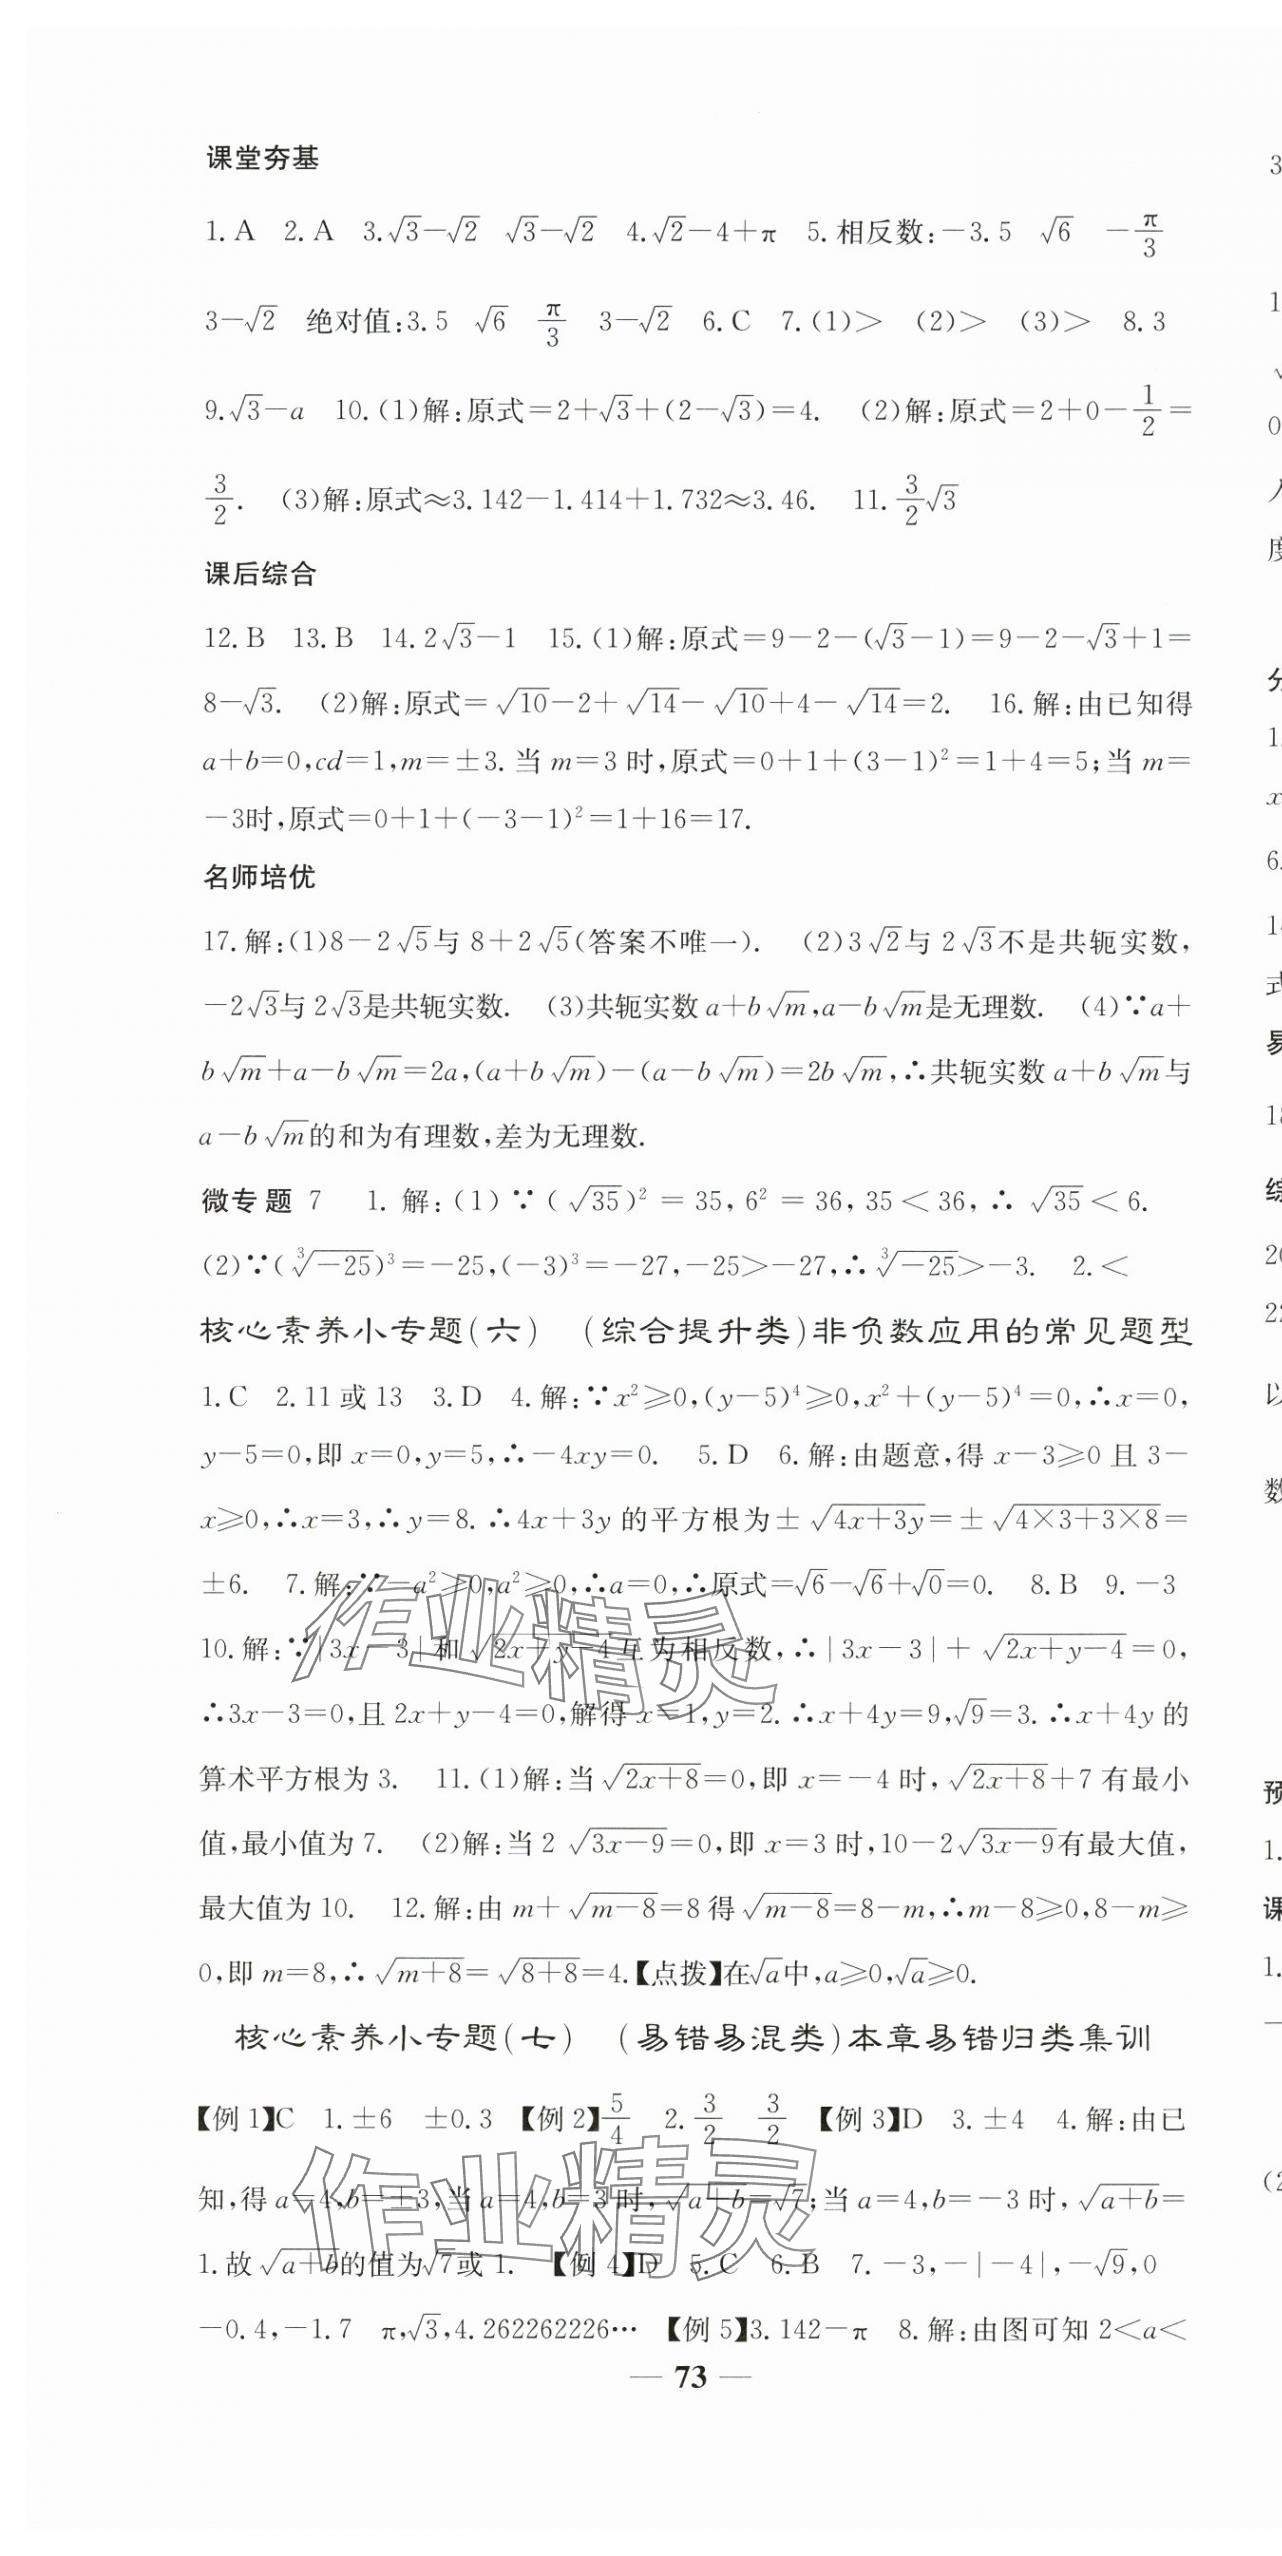 课堂夯基
1. A 2. A 3. √3−√2 √3−√2 4. √2−4+π 5. 相反数:−3.5 √6 −π/3
3−√2 绝对值:3.5 √6 π/3 3−√2 6. C 7. (1)> (2)> (3)> 8. 3
9. √3−a 10. (1)解:原式=2+√3+(2−√3)=4. (2)解:原式=2+0−1/2=
3/2. (3)解:原式≈3.142−1.414+1.732≈3.46. 11. 3/2√3
课后综合
12. B 13. B 14. 2√3−1 15. (1)解:原式=9−2−(√3−1)=9−2−√3+1=
8−√3. (2)解:原式=√10−2+√14−√10+4−√14=2. 16. 解:由已知得
a+b=0,cd=1,m=±3. 当 m=3 时,原式=0+1+(3−1)²=1+4=5;当 m=
−3时,原式=0+1+(−3−1)²=1+16=17.
名师培优
17. 解:(1)8−2√5与 8+2√5(答案不唯一). (2)3√2与 2√3不是共轭实数,
−2√3与 2√3是共轭实数. (3)共轭实数 a+b√m,a−b√m是无理数. (4)∵a+
b√m+a−b√m=2a,(a+b√m)−(a−b√m)=2b√m,∴共轭实数 a+b√m与
a−b√m的和为有理数,差为无理数.
微专题 7 1. 解:(1)∵(√35)²=35,6²=36,35<36,∴√35<6.
(2)∵(∛−25)³=−25,(−3)³=−27,−25>−27,∴∛−25>−3. 2. <
核心素养小专题(六) (综合提升类)非负数应用的常见题型
1. C 2. 11 或 13 3. D 4. 解:∵x²≥0,(y−5)⁴≥0,x²+(y−5)⁴=0,∴x=0,
y−5=0,即 x=0,y=5,∴−4xy=0. 5. D 6. 解:由题意,得 x−3≥0 且 3−
x≥0,∴x=3,∴y=8. ∴4x+3y 的平方根为±√(4x+3y)=±√(4×3+3×8)=
±6. 7. 解:∵−a²≥0,a²≥0,∴a=0,∴原式=√6−√6+√0=0. 8. B 9. −3
10. 解:∵|3x−3|和√(2x+y−4)互为相反数,∴|3x−3|+√(2x+y−4)=0,
∴3x−3=0,且 2x+y−4=0,解得 x=1,y=2. ∴x+4y=9,√9=3. ∴x+4y 的
算术平方根为 3. 11. (1)解:当√(2x+8)=0,即 x=−4 时,√(2x+8)+7 有最小
值,最小值为 7. (2)解:当 2√(3x−9)=0,即 x=3 时,10−2√(3x−9)有最大值,
最大值为 10. 12. 解:由 m+√(m−8)=8 得√(m−8)=8−m,∴m−8≥0,8−m≥
0,即 m=8,∴√(m+8)=√(8+8)=4.【点拨】在√a中,a≥0,√a≥0.
核心素养小专题(七) (易错易混类)本章易错归类集训
【例 1】C 1. ±6 ±0.3 【例 2】5/4 2. 3/2 3/2 【例 3】D 3. ±4 4. 解:由已
知,得 a=4,b=±3,当 a=4,b=3 时,√(a+b)=√7;当 a=4,b=−3 时,√(a+b)=
1. 故√(a+b)的值为√7或 1. 【例 4】D 5. C 6. B 7. −3,−|−4|,−√9,0
−0.4,−1.7 π,√3,4.262262226… 【例 5】3.142−π 8. 解:由图可知 2<a<
— 73 —
作业精灵
作业精灵
3
1
0
度
1.
x
6.
18
20
22
以
数
预
1.
课
1.
(2